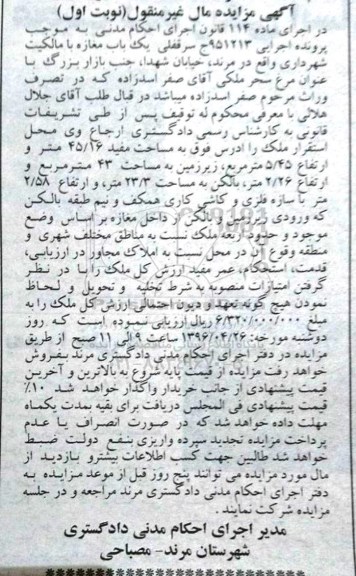 آگهی مزایده مال غیرمنقول(نوبت اول)
در اجرای ماده ۱۱۴ قانون اجرای احکام مدنی به موجب
پرونده اجرایی ۹۵۱۲۱۳ج سرقفلی یک باب مغازه با مالکیت
شهرداری واقع در مرند، خیابان شهدا، جنب بازار بزرگ با
عنوان مرغ سحر ملکی آقای صفر اسدزاده که در تصرف
وراث مرحوم صفر اسدزاده میباشد در قبال طلب آقای جلال
هلالی با معرفی محکوم له توقیف پس از طی تشریفات
قانونی به کارشناس رسمی دادگستری ارجاع وی محل
استقرار ملک را آدرس فوق به مساحت مفید ۴۵/۱۶ متر و
ارتفاع ۵/۴۵ مترمربع، زیرزمین به مساحت ۴۳ مترمربع و
ارتفاع ۲/۲۶ متر، بالکن به مساحت ۲۳/۳ متر، و ارتفاع ۲/۵۸
متر با سازه فلزی و کاشی کاری همکف و نیم طبقه بالکن
که ورودی زیرزمین و بالکن از داخل مغازه بر اساس وضع
موجود و حدود اربعه ملک نسبت به مناطق مختلف شهری و
منطقه وقوع آن در محل نسبت به املاک مجاور در ارزیابی،
قدمت، استحکام، عمر مفید ارزش کل ملک را با در نظر
گرفتن امتیازات منصوبه به شرط تخلیه و تحویل و لحاظ
نمودن هیچ گونه تعهد و دیون احتمالی ارزش کل ملک را به
مبلغ ۶/۳۲۰/۰۰۰/۰۰۰ ریال ارزیابی نموده است که روز
دوشنبه مورخه: ۱۳۹۶/۰۴/۲۶ ساعت ۹ الی ۱۱ صبح از طریق
مزایده در دفتر اجرای احکام مدنی دادگستری مرند بفروش
خواهد رفت مزایده از قیمت پایه شروع به بالاترین و آخرین
قیمت پیشنهادی از جانب خریدار واگذار خواهد شد ۱۰٪
قیمت پیشنهادی فی المجلس دریافت برای بقیه بمدت یکماه
مهلت داده خواهد شد که در صورت انصراف یا عدم
پرداخت مزایده تجدید سپرده واریزی بنفع دولت ضبط
خواهد شد طالبین جهت کسب اطلاعات بیشترو بازدید از
مال مورد مزایده می توانند پنج روز قبل از موعد مزایده به
دفتر اجرای احکام مدنی دادگستری مرند مراجعه و در جلسه
مزایده شرکت نمایند.
مدیر اجرای احکام مدنی دادگستری
شهرستان مرند- مصباحی